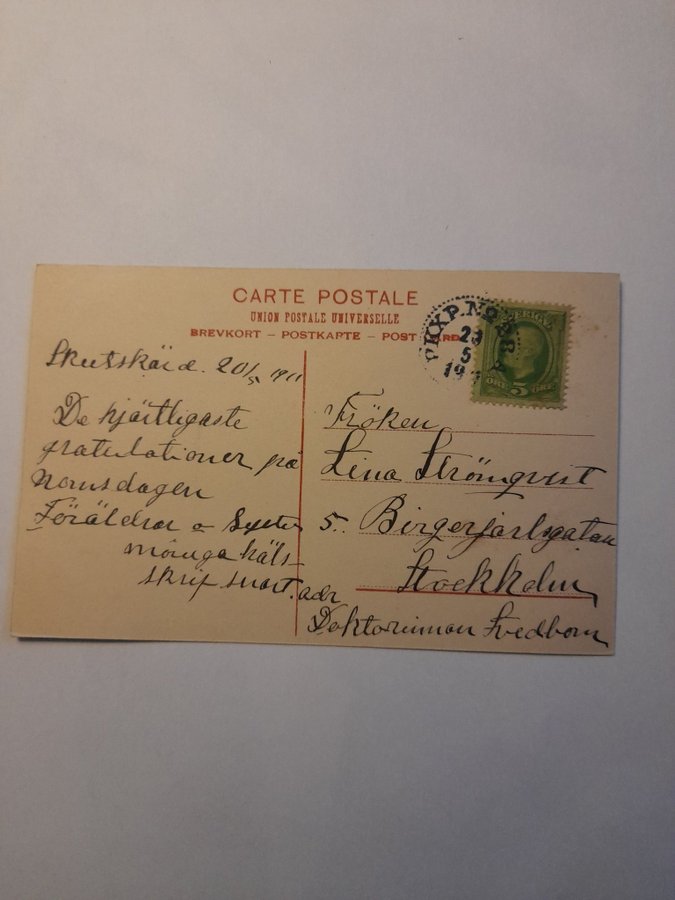 CARTE POSTALE
UNION POSTALE UNIVERSELLE
BREVKORT – POSTKARTE – POST CARD
PKXP. No
23
5
19
SVERIGE
ÖRE 5 ÖRE
Skutskär d. 20/5 1911
De hjärtligaste
gratulationer på
Namsdagen
Föräldrar o Syster
många häls-
skrif snart.
Fröken
Lina Strömqvist
5. Birgerjarlsgatan
Stockholm
adr
Doktorinnan Fredbom